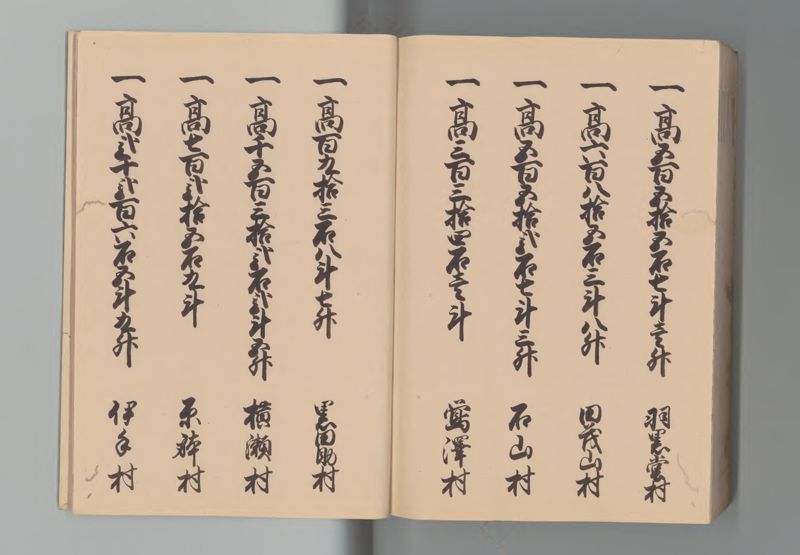 一高五百五拾五石七斗壱升 羽黒堂村
一高六百八拾五石三斗八升 田茂山村
一高五百五拾弐石七斗三升 石山村
一高三百三拾四石壱斗 鶯澤村
一高百九拾三石八斗七升 黒田助村
一高千五百三拾弐石弐斗五升 横瀬村
一高七百弐拾五石九斗 原躰村
一高弐千弐百六石五斗九升 伊手村